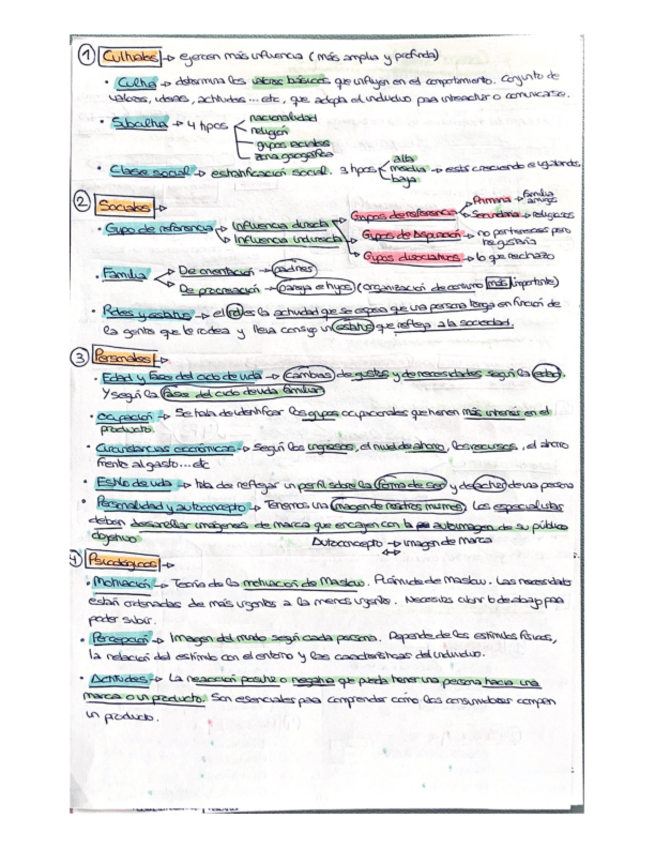 ① Culturales → ejercen más influencia (más amplia y profunda)
• Cultura → determina los valores básicos que influyen en el comportamiento. Conjunto de
valores, ideas, actitudes...etc, que adopta el individuo para interactuar o comunicarse.
• Subcultura → 4 tipos
nacionalidad
religión
grupos raciales
zona geográfica
• Clase social → estratificación social. 3 tipos
alta
media → está creciendo e igualando
baja
② Sociales →
• Grupo de referencia → Influencia directa
Influencia indirecta
Grupos de referencia
Primaria → familia amigos
Secundaria → religiosos
Grupos de Aspiración → no perteneces pero
te gustaría
Grupos disociativos → lo que rechazo
• Familia
De orientación → padres
De procreación → pareja e hijos (organización de consumo más importante)
• Roles y estatus → el rol es la actividad que se espera que una persona tenga en función de
la gente que le rodea y lleva consigo un estatus que refleja a la sociedad.
③ Personales →
• Edad y fase del ciclo de vida → cambias de gustos y de necesidades según la edad.
Y según la fase del ciclo de vida familiar
• Ocupación → Se trata de identificar los grupos ocupacionales que tienen más interés en el
producto.
• Circunstancias económicas → Según los ingresos, el nivel de ahorro, los recursos, el ahorro
frente al gasto...etc
• Estilo de vida → trata de reflejar un perfil sobre la forma de ser y de actuar de una persona
• Personalidad y autoconcepto → Tenemos una imagen de nosotros mismos. Los especialistas
deben desarrollar imágenes de marca que encajen con la autoimagen de su público
objetivo
Autoconcepto → imagen de marca
↔
4) Psicológicos →
• Motivación → Teoría de la motivación de Maslow. Pirámide de Maslow. Las necesidades
están ordenadas de más urgentes a la menos urgente. Necesitas cubrir lo de abajo para
poder subir.
• Percepción → Imagen del mundo según cada persona. Depende de los estímulos físicos,
la relación del estímulo con el entorno y las características del individuo.
• Actitudes → La reacción positiva o negativa que pueda tener una persona hacia una
marca o un producto. Son esenciales para comprender cómo los consumidores compran
un producto.